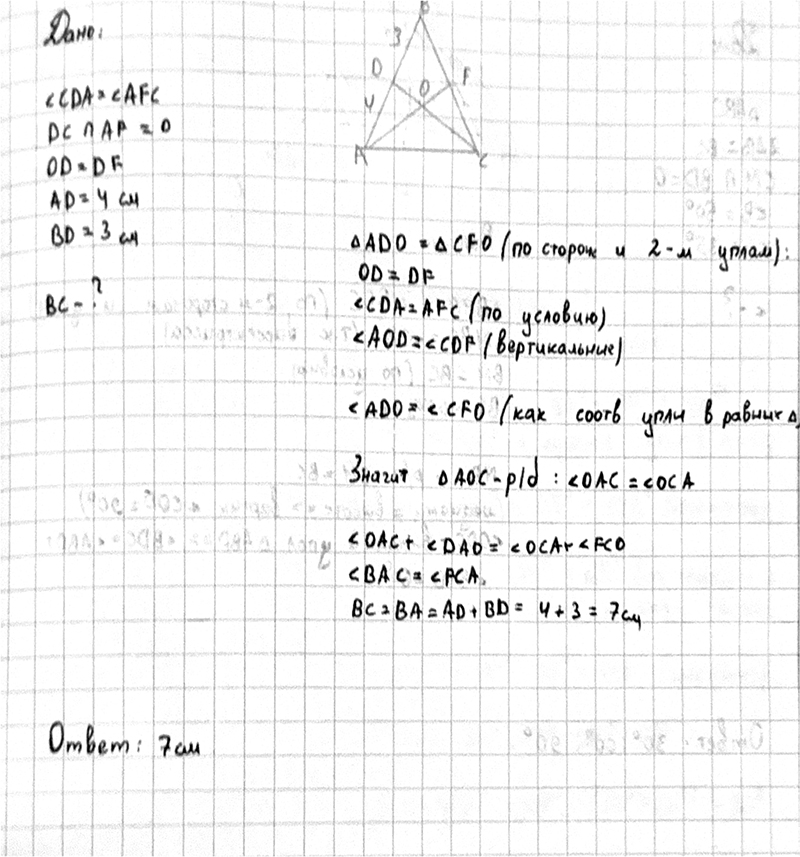 Дано:
B
3
D
F
O
4
A
C
<CDA=<AFC
DC ∩ AF = O
OD=DF
AD=4 см
BD=3 см
BC-?
△ADO = △CFO (по сторон и 2-м углам):
OD=DF
<CDA=AFC (по условию)
<AOD=<CDF (вертикальные)
<ADO=<CFO (как соотв углы в равных △)
Значит △AOC-р/б : <OAC=<OCA
<OAC+ <DAO= <OCA+ <FCO
<BAC=<FCA.
BC=BA=AD+BD= 4+3=7см
Ответ: 7см